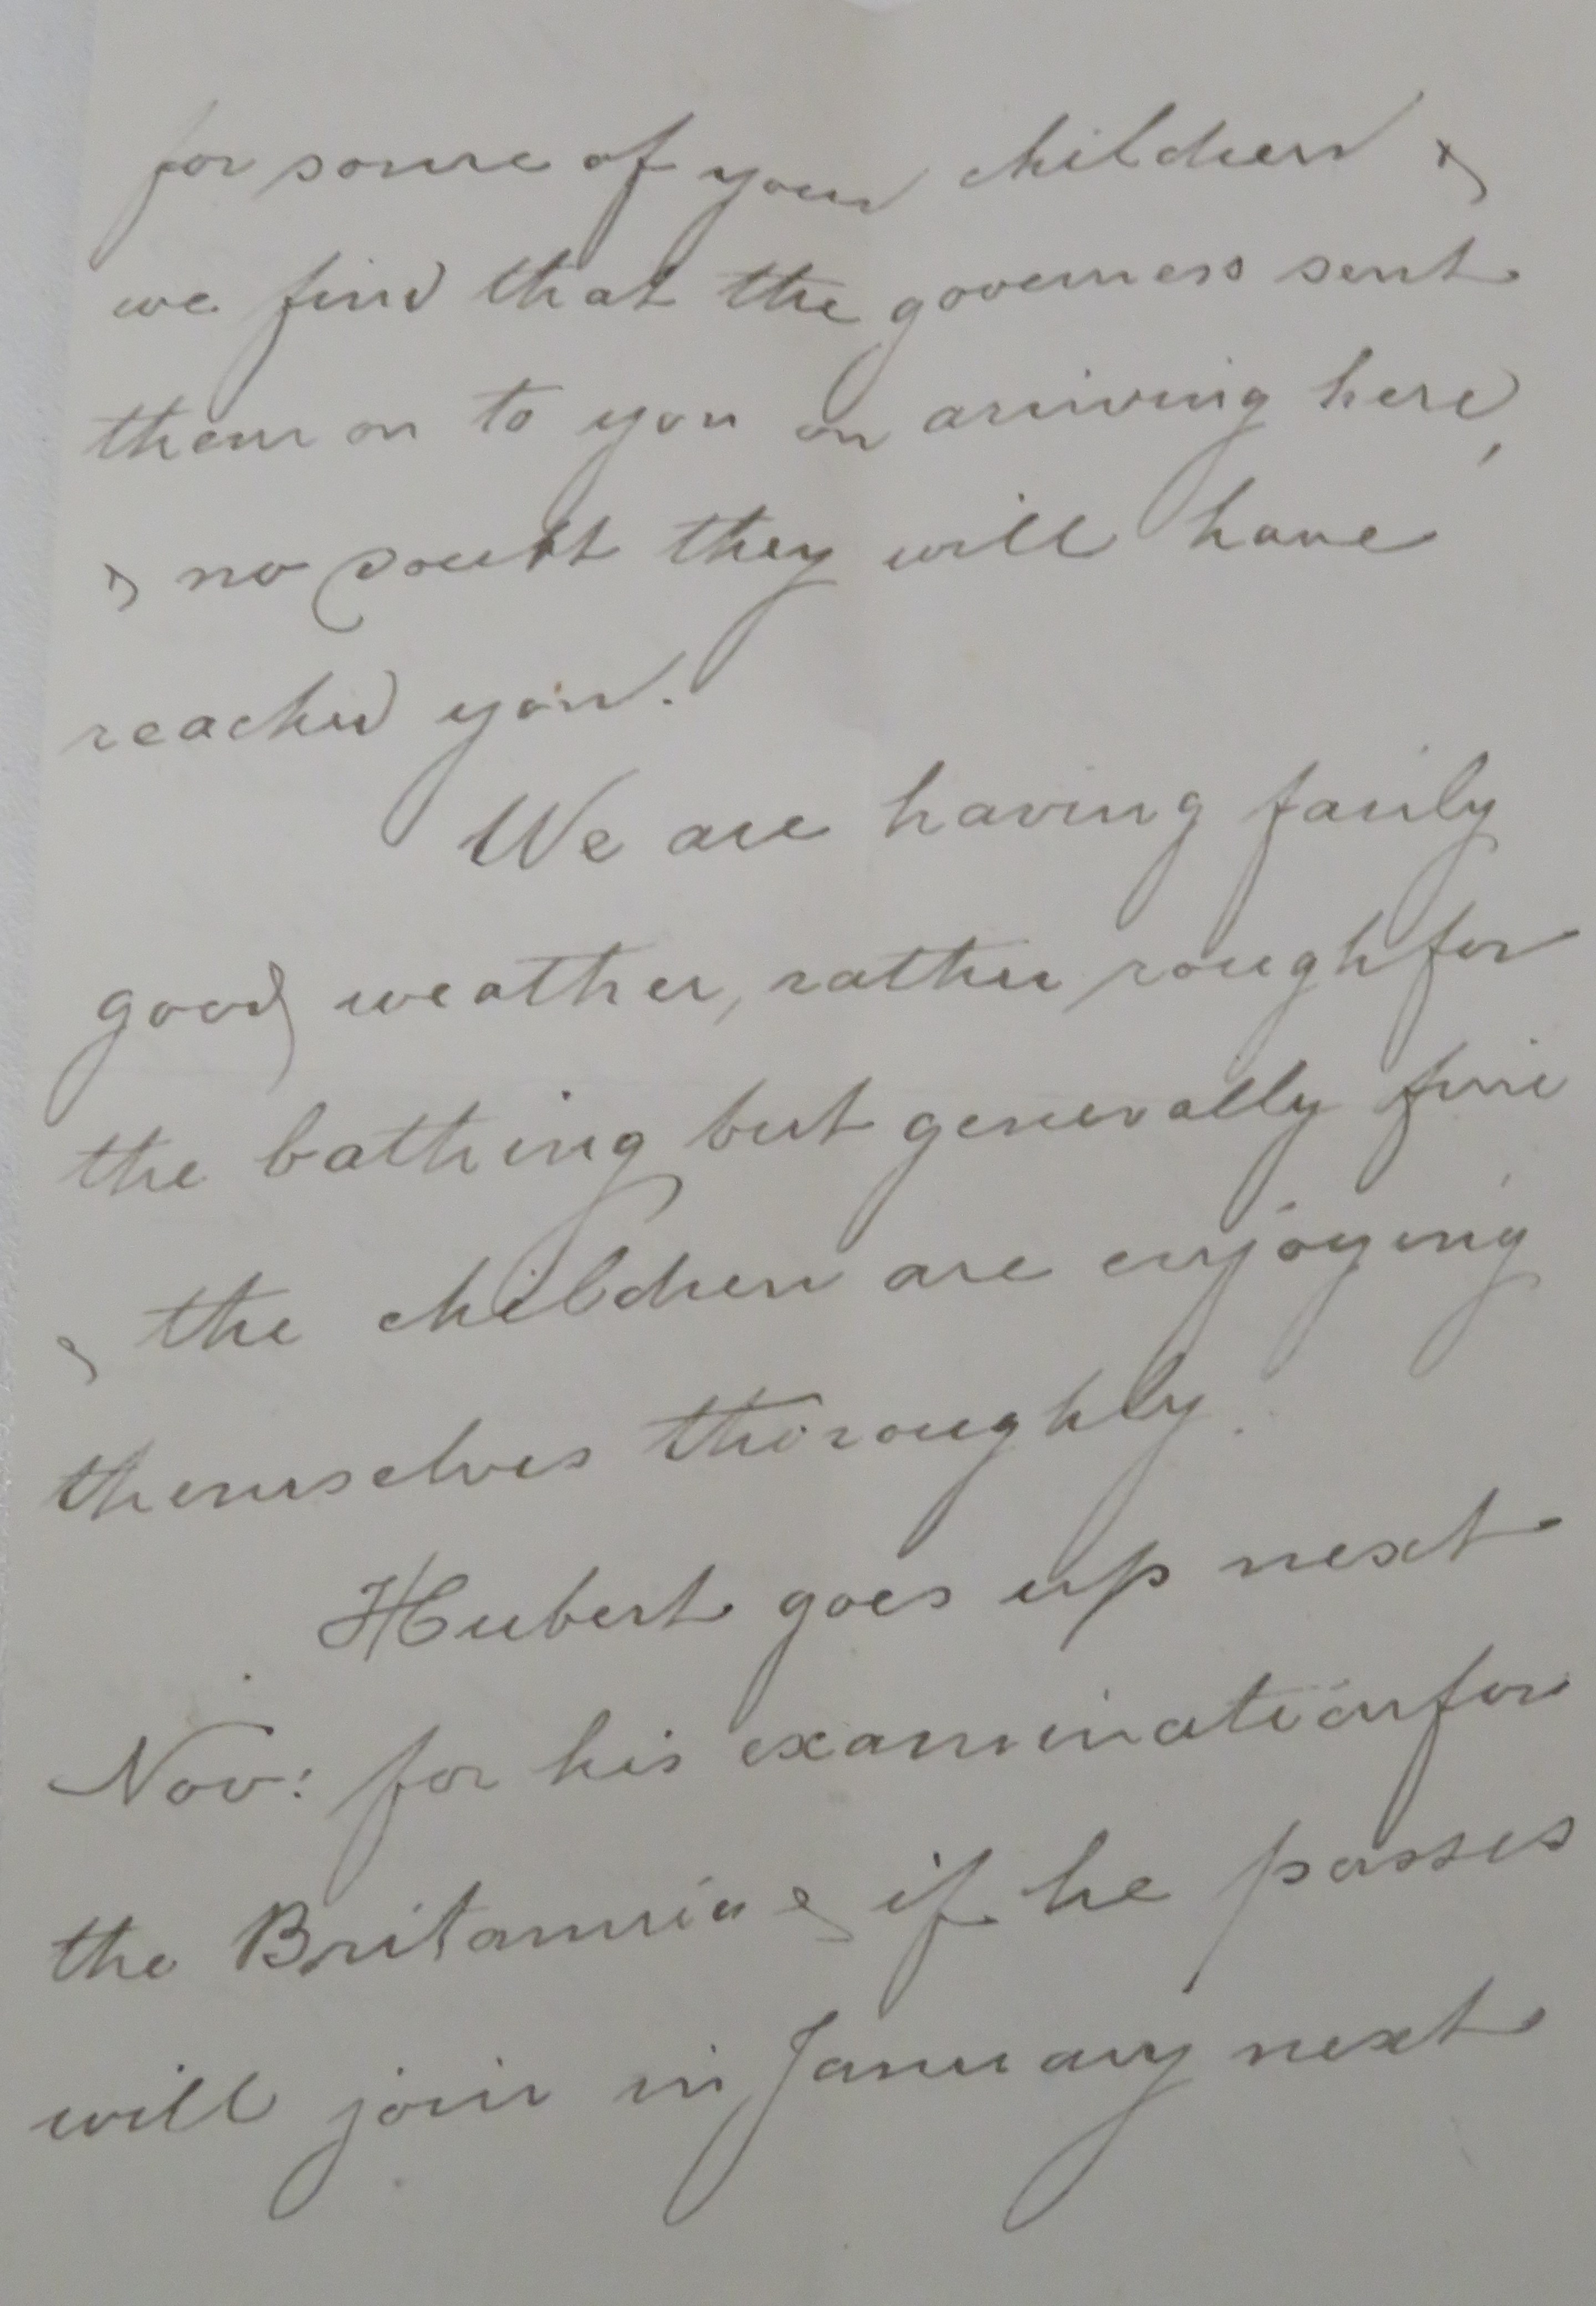 for some of your children &
we find that the governess sent
them on to you on arriving here,
& no doubt they will have
reached you.
We are having fairly
good weather, rather rough for
the bathing but generally fine
& the children are enjoying
themselves thoroughly.
Hubert goes up next
Nov: for his examination for
the Britannia & if he passes
will join in January next